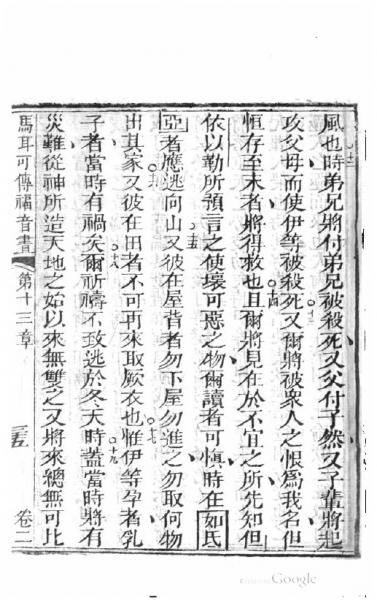 風也時弟兄將付弟兄被殺死又父付子然又子輩將起
攻父母而使伊等被殺死又爾將被衆人之恨爲我名但
恒存至末者將得救也且爾將見在於不宜之所先知但
依以勒所預言之使壞可惡之物爾讀者可慎時在如氐
亞者應逃向山又彼在屋背者勿下屋勿進之勿取何物
出其家又彼在田者不可再來取厥衣也惟伊等孕者乳
子者當時有禍矣爾祈禱不致逃於冬天時蓋當時將有
災難從神所造天地之始以來無雙之又將來總無可比
馬耳可傳福音書 第十三章 三五 卷二
Google